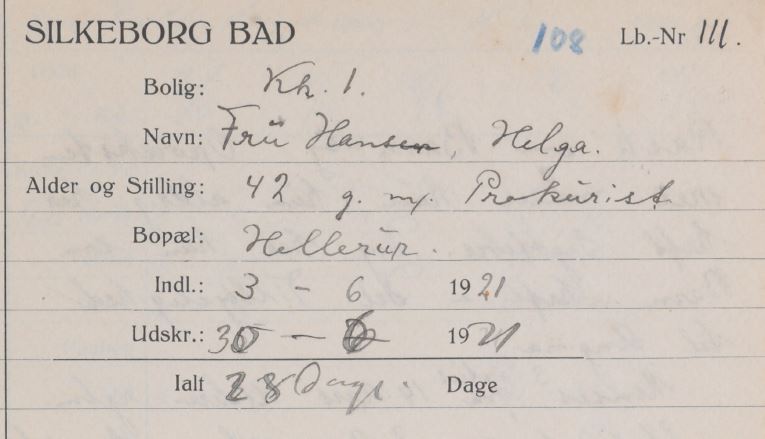 SILKEBORG BAD 108 Lb.-Nr 111.
Bolig: Kh. 1.
Navn: Frü Hansen, Helga.
Alder og Stilling: 42 g. m. Prokürist
Bopæl: Hellerüp.
Indl.: 3 - 6 1921
Udskr.: 30 - 6 1921
Ialt 28 Dage. Dage